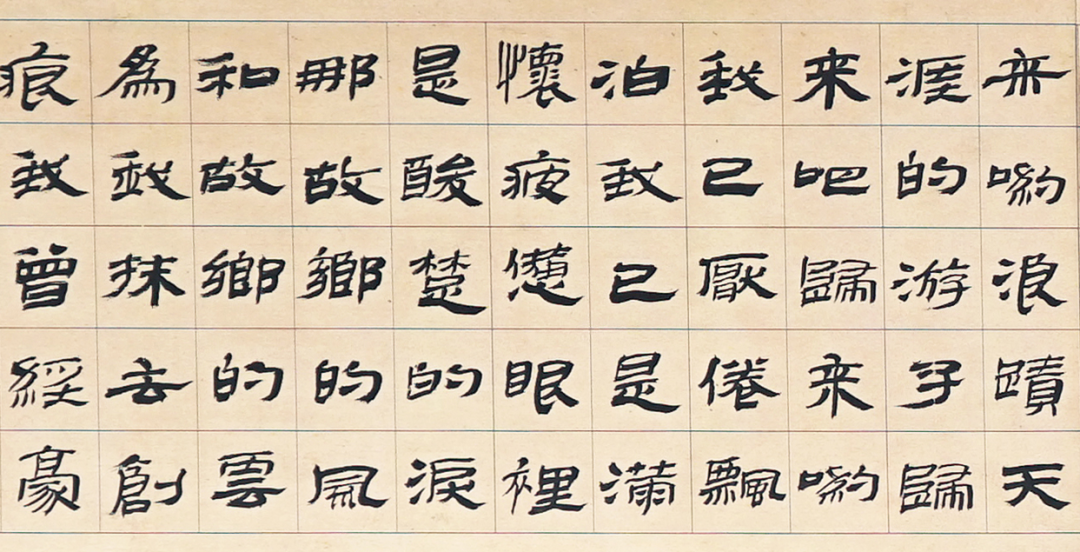 来喲浪蹟天
涯的游子歸
来吧歸来喲
我已厭倦飄
泊我已是滿
懷疲憊眼裡
是酸楚的淚
那故鄉的風
和故鄉的雲
為我抹去創
痕我曾經豪